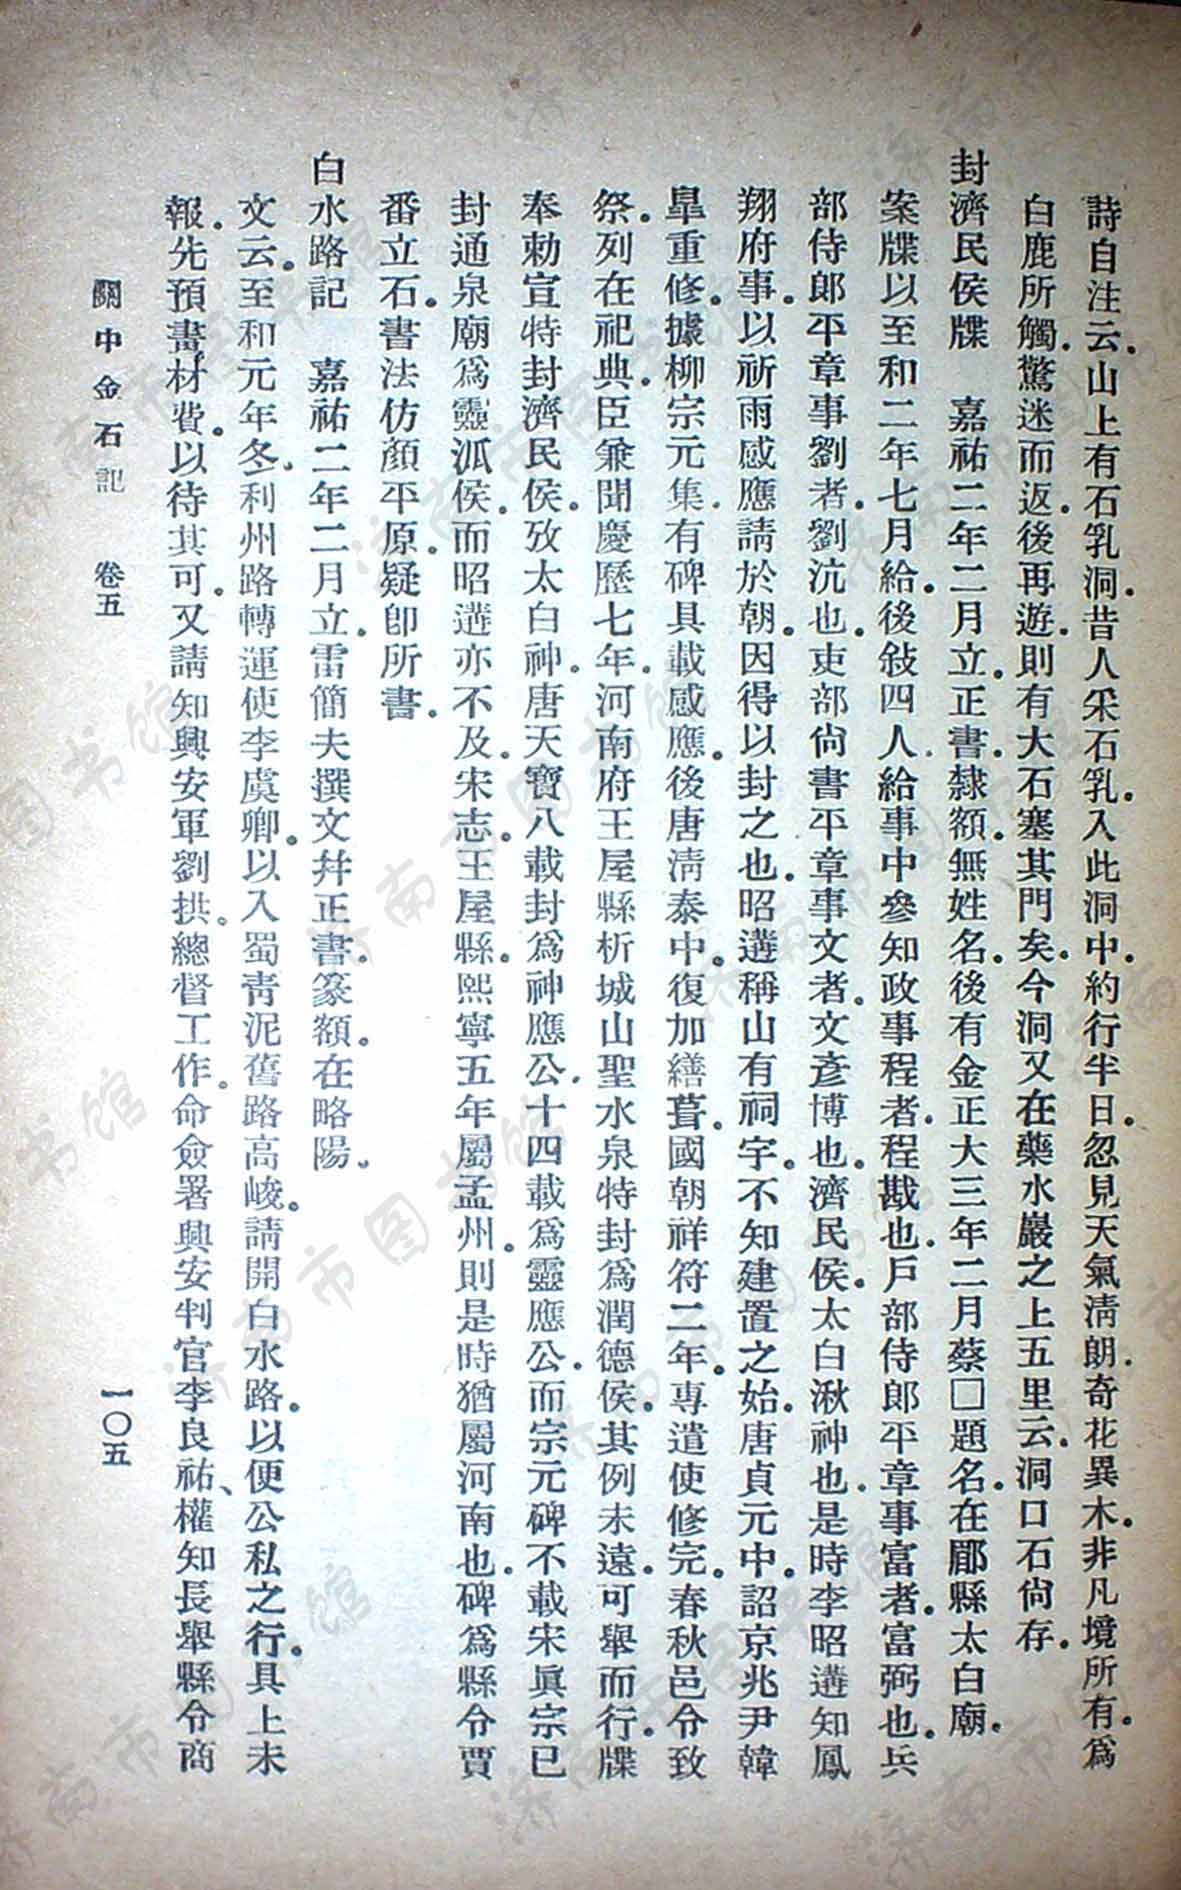 詩自注云。山上有石乳洞。昔人采石乳。入此洞中。約行半日。忽見天氣淸朗。奇花異木。非凡境所有。爲
白鹿所觸。驚迷而返。後再遊。則有大石塞其門矣。今洞又在藥水巖之上五里云。洞口石尙存。
封濟民侯牒　嘉祐二年二月立。正書。隸額。無姓名。後有金正大三年二月蔡□題名。在郿縣太白廟。
案牒以至和二年七月給。後敍四人。給事中參知政事程者。程戡也。戶部侍郎平章事富者。富弼也。兵
部侍郎平章事劉者。劉沆也。吏部尙書平章事文者。文彥博也。濟民侯。太白湫神也。是時李昭遘知鳳
翔府事。以祈雨感應。請於朝。因得以封之也。昭遘稱山有祠宇。不知建置之始。唐貞元中。詔京兆尹韓
臯重修。據柳宗元集。有碑具載感應。後唐淸泰中。復加繕葺。國朝祥符二年。專遣使修完。春秋邑令致
祭。列在祀典。臣兼聞慶歷七年。河南府王屋縣析城山聖水泉特封爲潤德侯。其例未遠。可舉而行。牒
奉勅宣特封濟民侯。攷太白神。唐天寶八載封爲神應公。十四載爲靈應公。而宗元碑不載。宋眞宗已
封通泉廟爲靈派侯。而昭遘亦不及。宋志。王屋縣。熙寧五年屬孟州。則是時猶屬河南也。碑爲縣令賈
番立石。書法仿顏平原。疑卽所書。
白水路記　嘉祐二年二月立。雷簡夫撰文幷正書。篆額。在略陽。
文云。至和元年冬。利州路轉運使李虞卿。以入蜀靑泥舊路高峻。請開白水路。以便公私之行。具上未
報。先預畫材費。以待其可。又請知興安軍劉拱。總督工作。命僉署興安判官李良祐、權知長舉縣令商
關中金石記　卷五　一〇五